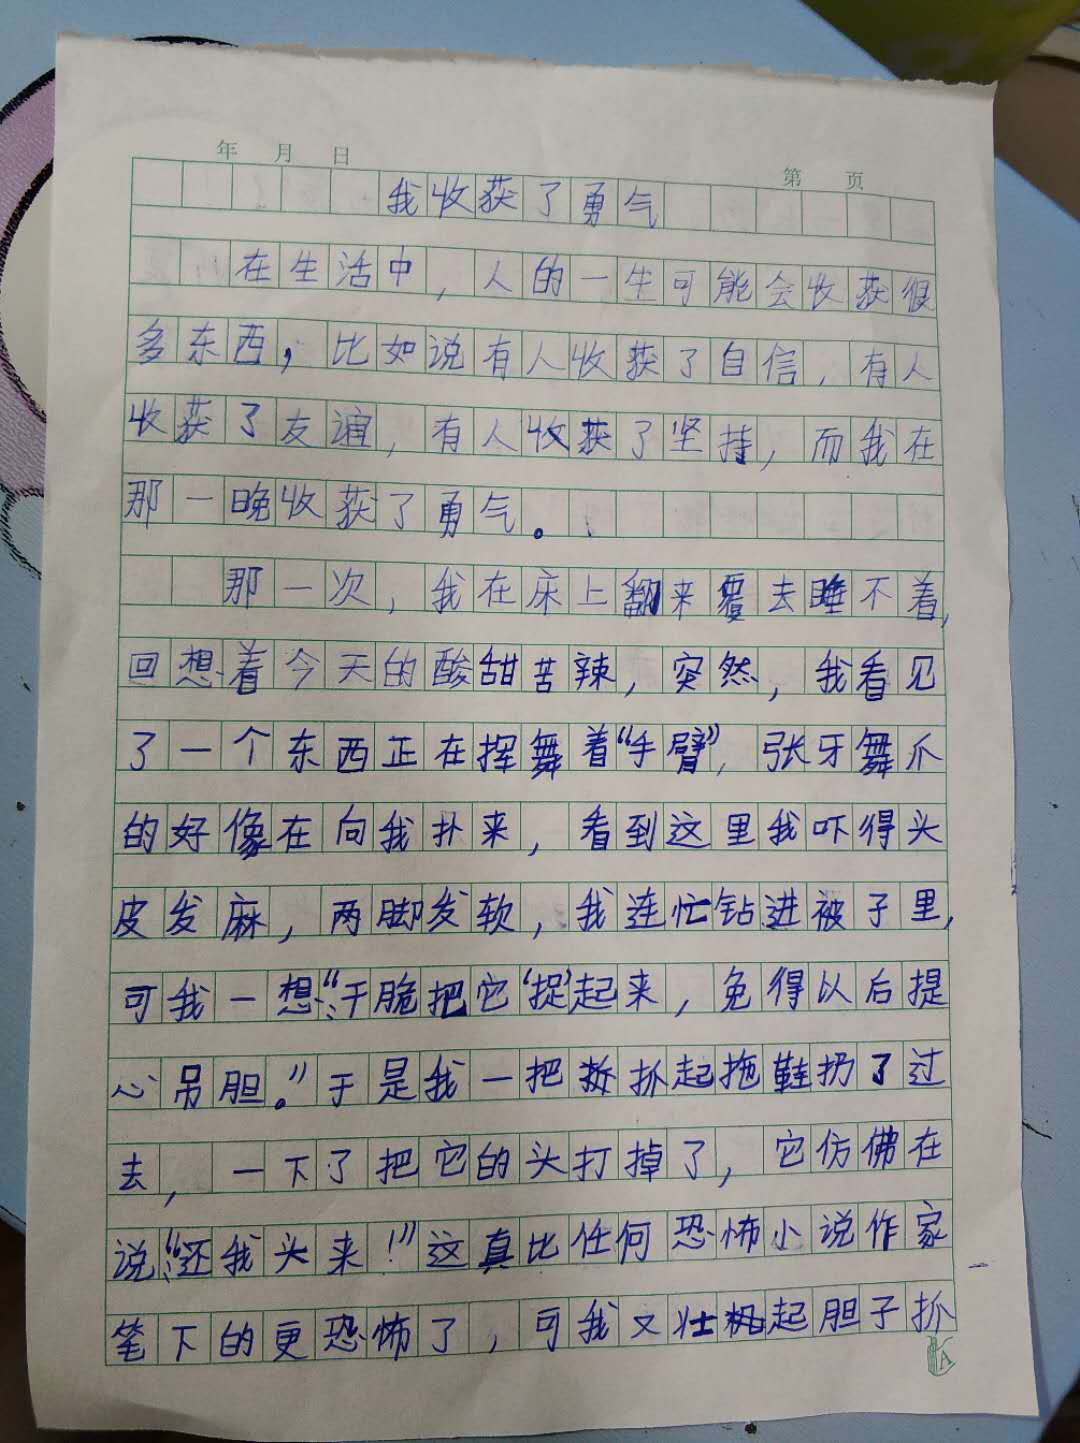 年 月 日
第 页
我收获了勇气
在生活中，人的一生可能会收获很
多东西，比如说有人收获了自信，有人
收获了友谊，有人收获了坚持，而我在
那一晚收获了勇气。
那一次，我在床上翻来覆去睡不着，
回想着今天的酸甜苦辣，突然，我看见
了一个东西正在挥舞着“手臂”，张牙舞爪
的好像在向我扑来，看到这里我吓得头
皮发麻，两脚发软，我连忙钻进被子里，
可我一想：“干脆把它‘捉’起来，免得以后提
心吊胆。”于是我一把抓起拖鞋扔了过
去，一下了把它的头打掉了，它仿佛在
说：“还我头来！”这真比任何恐怖小说作家
笔下的更恐怖了，可我又壮起胆子抓